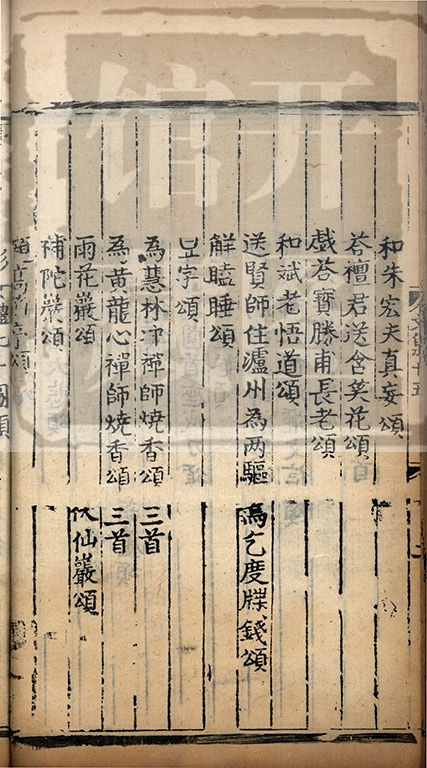 和朱宏夫真妄頌
荅檀君送含笑花頌
戲荅寶勝甫長老頌
和斌老悟道頌
送賢師住瀘州為两驅烏乞度牒錢頌
解瞌睡頌
𠮛字頌
為慧林冲禪師燒香頌 三首
為黄龍心禪師燒香頌 三首
雨花巖頌 伏仙巖頌
補陀巖頌
髙莭亭頌